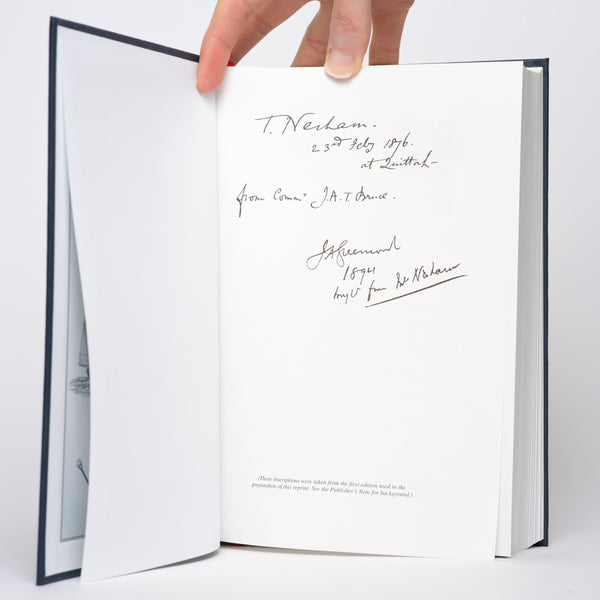 T. Nesham.
23rd Feby 1876.
at Quittah
from Commr J.A.T. Bruce.
1894
from Nesham
(These inscriptions were taken from the first edition used in the
preparation of this reprint. See the Publisher's Note for background.)